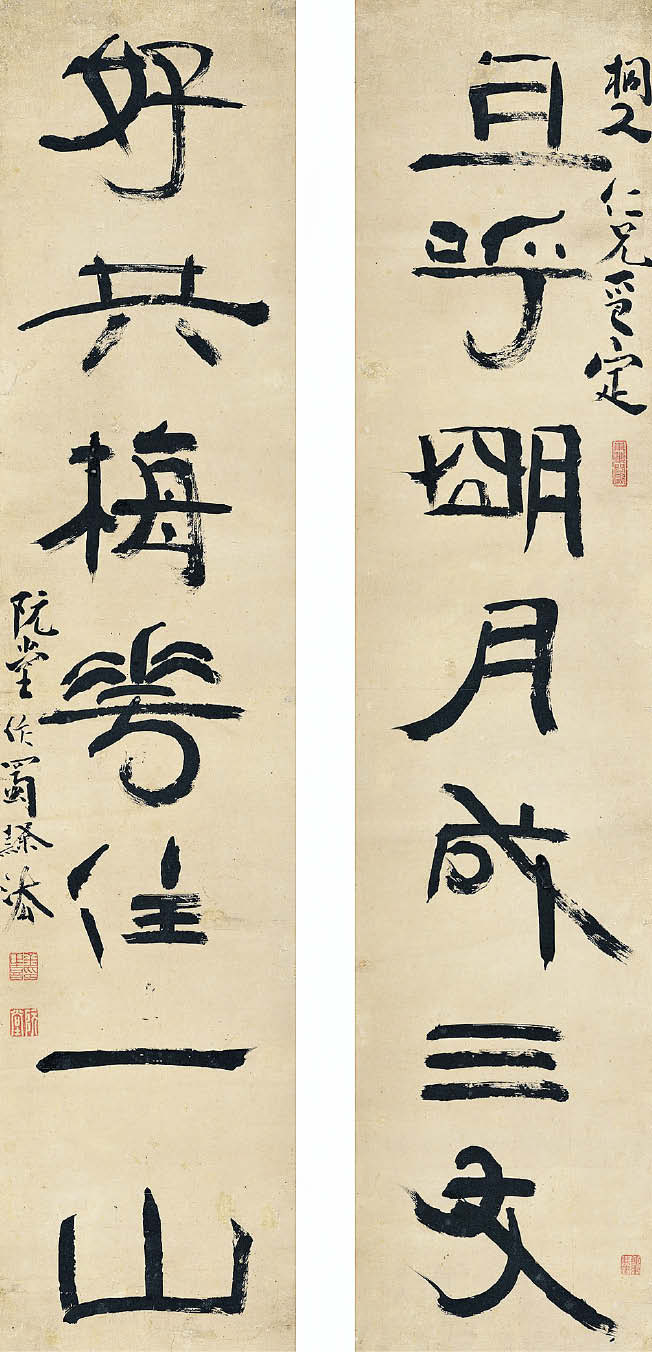 桐人仁兄
且呼明月成三友
好共梅花住一山
阮堂作蜀隸法